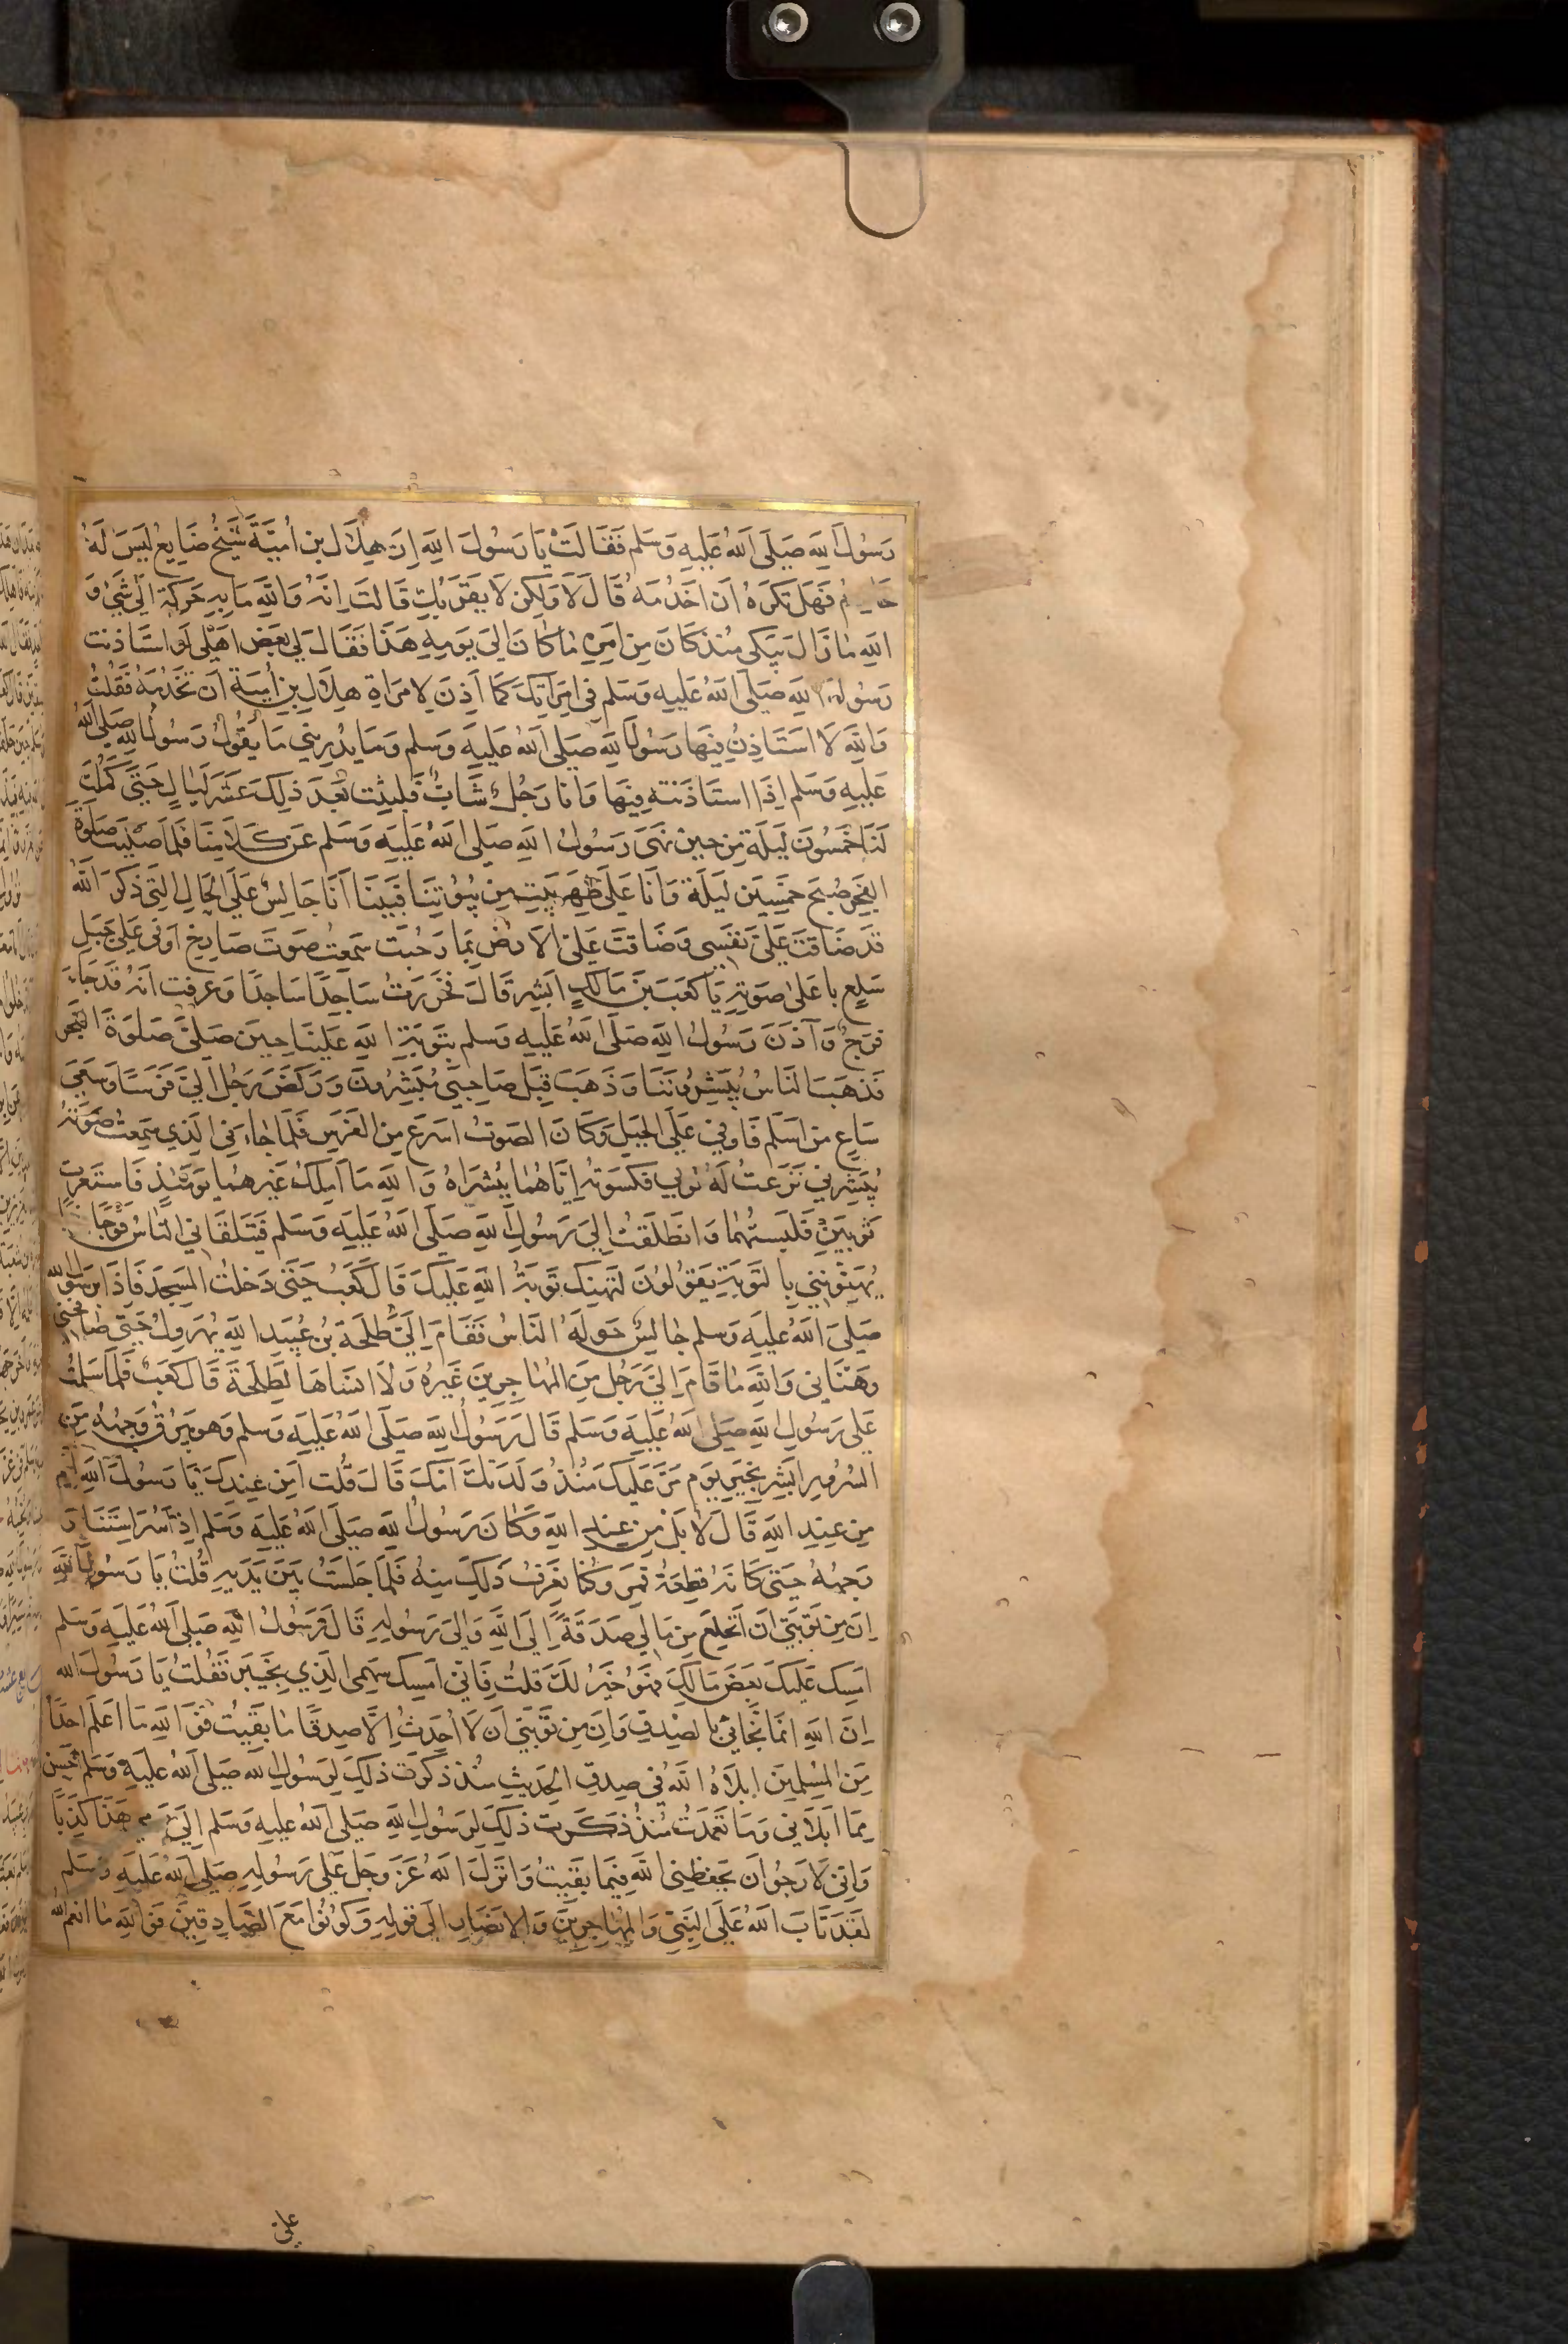 رَسُولَ اللهِ صَلَّى اللهُ عَلَيهِ وَسَلَّم فَقَالَتْ يَا رَسُولَ اللهِ اِنَّ هِلَالَ بن اُمَيَّةَ شَيْخٌ ضَايِعٌ لَيسَ لَهُ
خَادِمٌ فَهَل تَكرَهُ اَن اَخدُمَهُ قَالَ لَا وَلَكِن لَا يَقرَبُكِ قَالَت اِنَّهُ وَاللهِ مَا بِهِ حَرَكَةٌ اِلَى شَيْءٍ وَ
اللهِ مَا زَالَ يَبكِي مُنذ كَانَ مِن اَمرِهِ مَا كَانَ اِلَى يَومِهِ هَذَا فَقَالَ لِي بَعض اَهلِي لَو استَاذَنتَ
رَسُولَ اللهِ صَلَّى اللهُ عَلَيهِ وَسَلَّم فِي امرَاَتِكَ كَمَا اَذِنَ لِامرَاةِ هِلَالِ بنِ اُمَيَّةَ اَن تَخدُمَهُ فَقُلتُ
وَاللهِ لَا اَستَاذِنُ فِيهَا رَسُولَ اللهِ صَلَّى اللهُ عَلَيهِ وَسَلَّم وَمَا يُدرِينِي مَا يَقُولُ رَسُولُ اللهِ صَلَّى اللهُ
عَلَيهِ وَسَلَّم اِذَا استَاذَنتهُ فِيهَا وَاَنَا رَجُلٌ شَابٌّ فَلَبِثت بَعدَ ذَلِكَ عَشرَ لَيَالٍ حَتَّى كَمُلَت
لَنَا خَمسُونَ لَيلَةً مِن حِين نَهَى رَسُولُ اللهِ صَلَّى اللهُ عَلَيهِ وَسَلَّم عَن كَلَامِنَا فَلَمَّا صَلَّيتُ صَلَوةَ
الفَجرِ صُبحَ خَمسِينَ لَيلَةً وَاَنَا عَلَى ظَهرِ بَيتٍ مِن بُيُوتِنَا فَبَينَا اَنَا جَالِسٌ عَلَى الحَالِ الَّتِي ذَكَرَ اللهُ
قَد ضَاقَت عَلَيَّ نَفسِي وَضَاقَت عَلَيَّ الاَرضُ بِمَا رَحُبَت سَمِعتُ صَوتَ صَارِخٍ اَوفَى عَلَى جَبَلِ
سَلعٍ بِاَعلَى صَوتِهِ يَا كَعبَ بنَ مَالِكٍ اَبشِر قَالَ فَخَرَرتُ سَاجِدًا سَاجِدًا وَعَرَفت اَنَّهُ قَد جَاءَ
فَرَجٌ وَآذَنَ رَسُولُ اللهِ صَلَّى اللهُ عَلَيهِ وَسَلَّم بِتَوبَةِ اللهِ عَلَينَا حِينَ صَلَّى صَلَوةَ الفَجرِ
فَذَهَبَ النَّاسُ يُبَشِّرُونَنَا وَذَهَبَ قِبَلَ صَاحِبَيَّ مُبَشِّرُونَ وَرَكَضَ رَجُل اِلَيَّ فَرَسًا وَسَعَى
سَاعٍ مِن اَسلَم فَاَوفَى عَلَى الجَبَلِ وَكَانَ الصَّوتُ اَسرَع مِنَ الفَرَسِ فَلَمَّا جَاءَنِي الَّذِي سَمِعتُ صَوتَهُ
يُبَشِّرُنِي نَزَعتُ لَهُ ثَوبَي فَكَسَوتُهُ اِيَّاهُمَا بِبُشرَاهُ وَاللهِ مَا اَملِكُ غَيرَهُمَا يَومَئِذٍ فَاستَعَرتُ
ثَوبَينِ فَلَبِستُهُمَا وَانطَلَقتُ اِلَى رَسُولِ اللهِ صَلَّى اللهُ عَلَيهِ وَسَلَّم فَتَلَقَّانِي النَّاسُ فَوجًا
يُهَنِّؤنَنِي بِالتَّوبَةِ يَقُولُونَ لِتَهنِكَ تَوبَةُ اللهِ عَلَيكَ قَالَ كَعبٌ حَتَّى دَخَلتُ المَسجِدَ فَاِذَا بِرَسُولِ اللهِ
صَلَّى اللهُ عَلَيهِ وَسَلَّم جَالِسٌ حَولَهُ النَّاسُ فَقَامَ اِلَيَّ طَلحَةُ بنُ عُبَيدِ اللهِ يُهَروِلُ حَتَّى صَافَحَنِي
وَهَنَّانِي وَاللهِ مَا قَامَ اِلَيَّ رَجُل مِنَ المُهَاجِرِينَ غَيرُهُ وَلَا اَنسَاهَا لِطَلحَةَ قَالَ كَعبٌ فَلَمَّا سَلَّمتُ
عَلَى رَسُولِ اللهِ صَلَّى اللهُ عَلَيهِ وَسَلَّم قَالَ رَسُولُ اللهِ صَلَّى اللهُ عَلَيهِ وَسَلَّم وَهو يَبرُقُ وَجهُهُ مِنَ
السُّرُورِ اَبشِر بِخَيرِ يَومٍ مَرَّ عَلَيكَ مُنذُ وَلَدَتكَ اُمُّكَ قَالَ قُلت اَمِن عِندِكَ يَا رَسُولَ اللهِ اَم
مِن عِندِ اللهِ قَالَ لَا بَل مِن عِندِ اللهِ وَكَانَ رَسُولُ اللهِ صَلَّى اللهُ عَلَيهِ وَسَلَّم اِذَا سُرَّ استَنَارَ
وَجهُهُ حَتَّى كَاَنَّهُ قِطعَةُ قَمَرٍ وَكُنَّا نَعرِفُ ذَلِكَ مِنهُ فَلَمَّا جَلَستُ بَينَ يَدَيهِ قُلتُ يَا رَسُولَ اللهِ
اِنَّ مِن تَوبَتِي اَن اَنخَلِعَ مِن مَالِي صَدَقَةً اِلَى اللهِ وَاِلَى رَسُولِهِ قَالَ رَسُولُ اللهِ صَلَّى اللهُ عَلَيهِ وَسَلَّم
اَمسِك عَلَيكَ بَعضَ مَالِكَ فَهُوَ خَيرٌ لَكَ قُلتُ فَاِنِّي اُمسِك سَهمِي الَّذِي بِخَيبَر فَقُلتُ يَا رَسُولَ اللهِ
اِنَّ اللهَ اِنَّمَا نَجَّانِي بِالصِّدقِ وَاِنَّ مِن تَوبَتِي اَن لَا اُحَدِّثَ اِلَّا صِدقًا مَا بَقِيتُ فَوَاللهِ مَا اَعلَم اَحَدًا
مِنَ المُسلِمِينَ اَبلَاهُ اللهُ فِي صِدقِ الحَدِيثِ مُنذ ذَكَرت ذَلِكَ لِرَسُولِ اللهِ صَلَّى اللهُ عَلَيهِ وَسَلَّم اَحسَن
مِمَّا اَبلَانِي وَمَا تَعَمَّدتُ مُنذُ ذَكَرت ذَلِكَ لِرَسُولِ اللهِ صَلَّى اللهُ عَلَيهِ وَسَلَّم اِلَى هَذَا كَذِبًا
وَاِنِّي لَاَرجُو اَن يَحفَظَنِي اللهُ فِيمَا بَقِيتُ وَاَنزَلَ اللهُ عَزَّ وَجَلَّ عَلَى رَسُولِهِ صَلَّى اللهُ عَلَيهِ وَسَلَّم
لَقَد تَابَ اللهُ عَلَى النَّبِيِّ وَالمُهَاجِرِينَ وَالاَنصَارِ اِلَى قَولِهِ وَكُونُوا مَعَ الصَّادِقِينَ فَوَاللهِ مَا اَنعَمَ اللهُ
علىّ